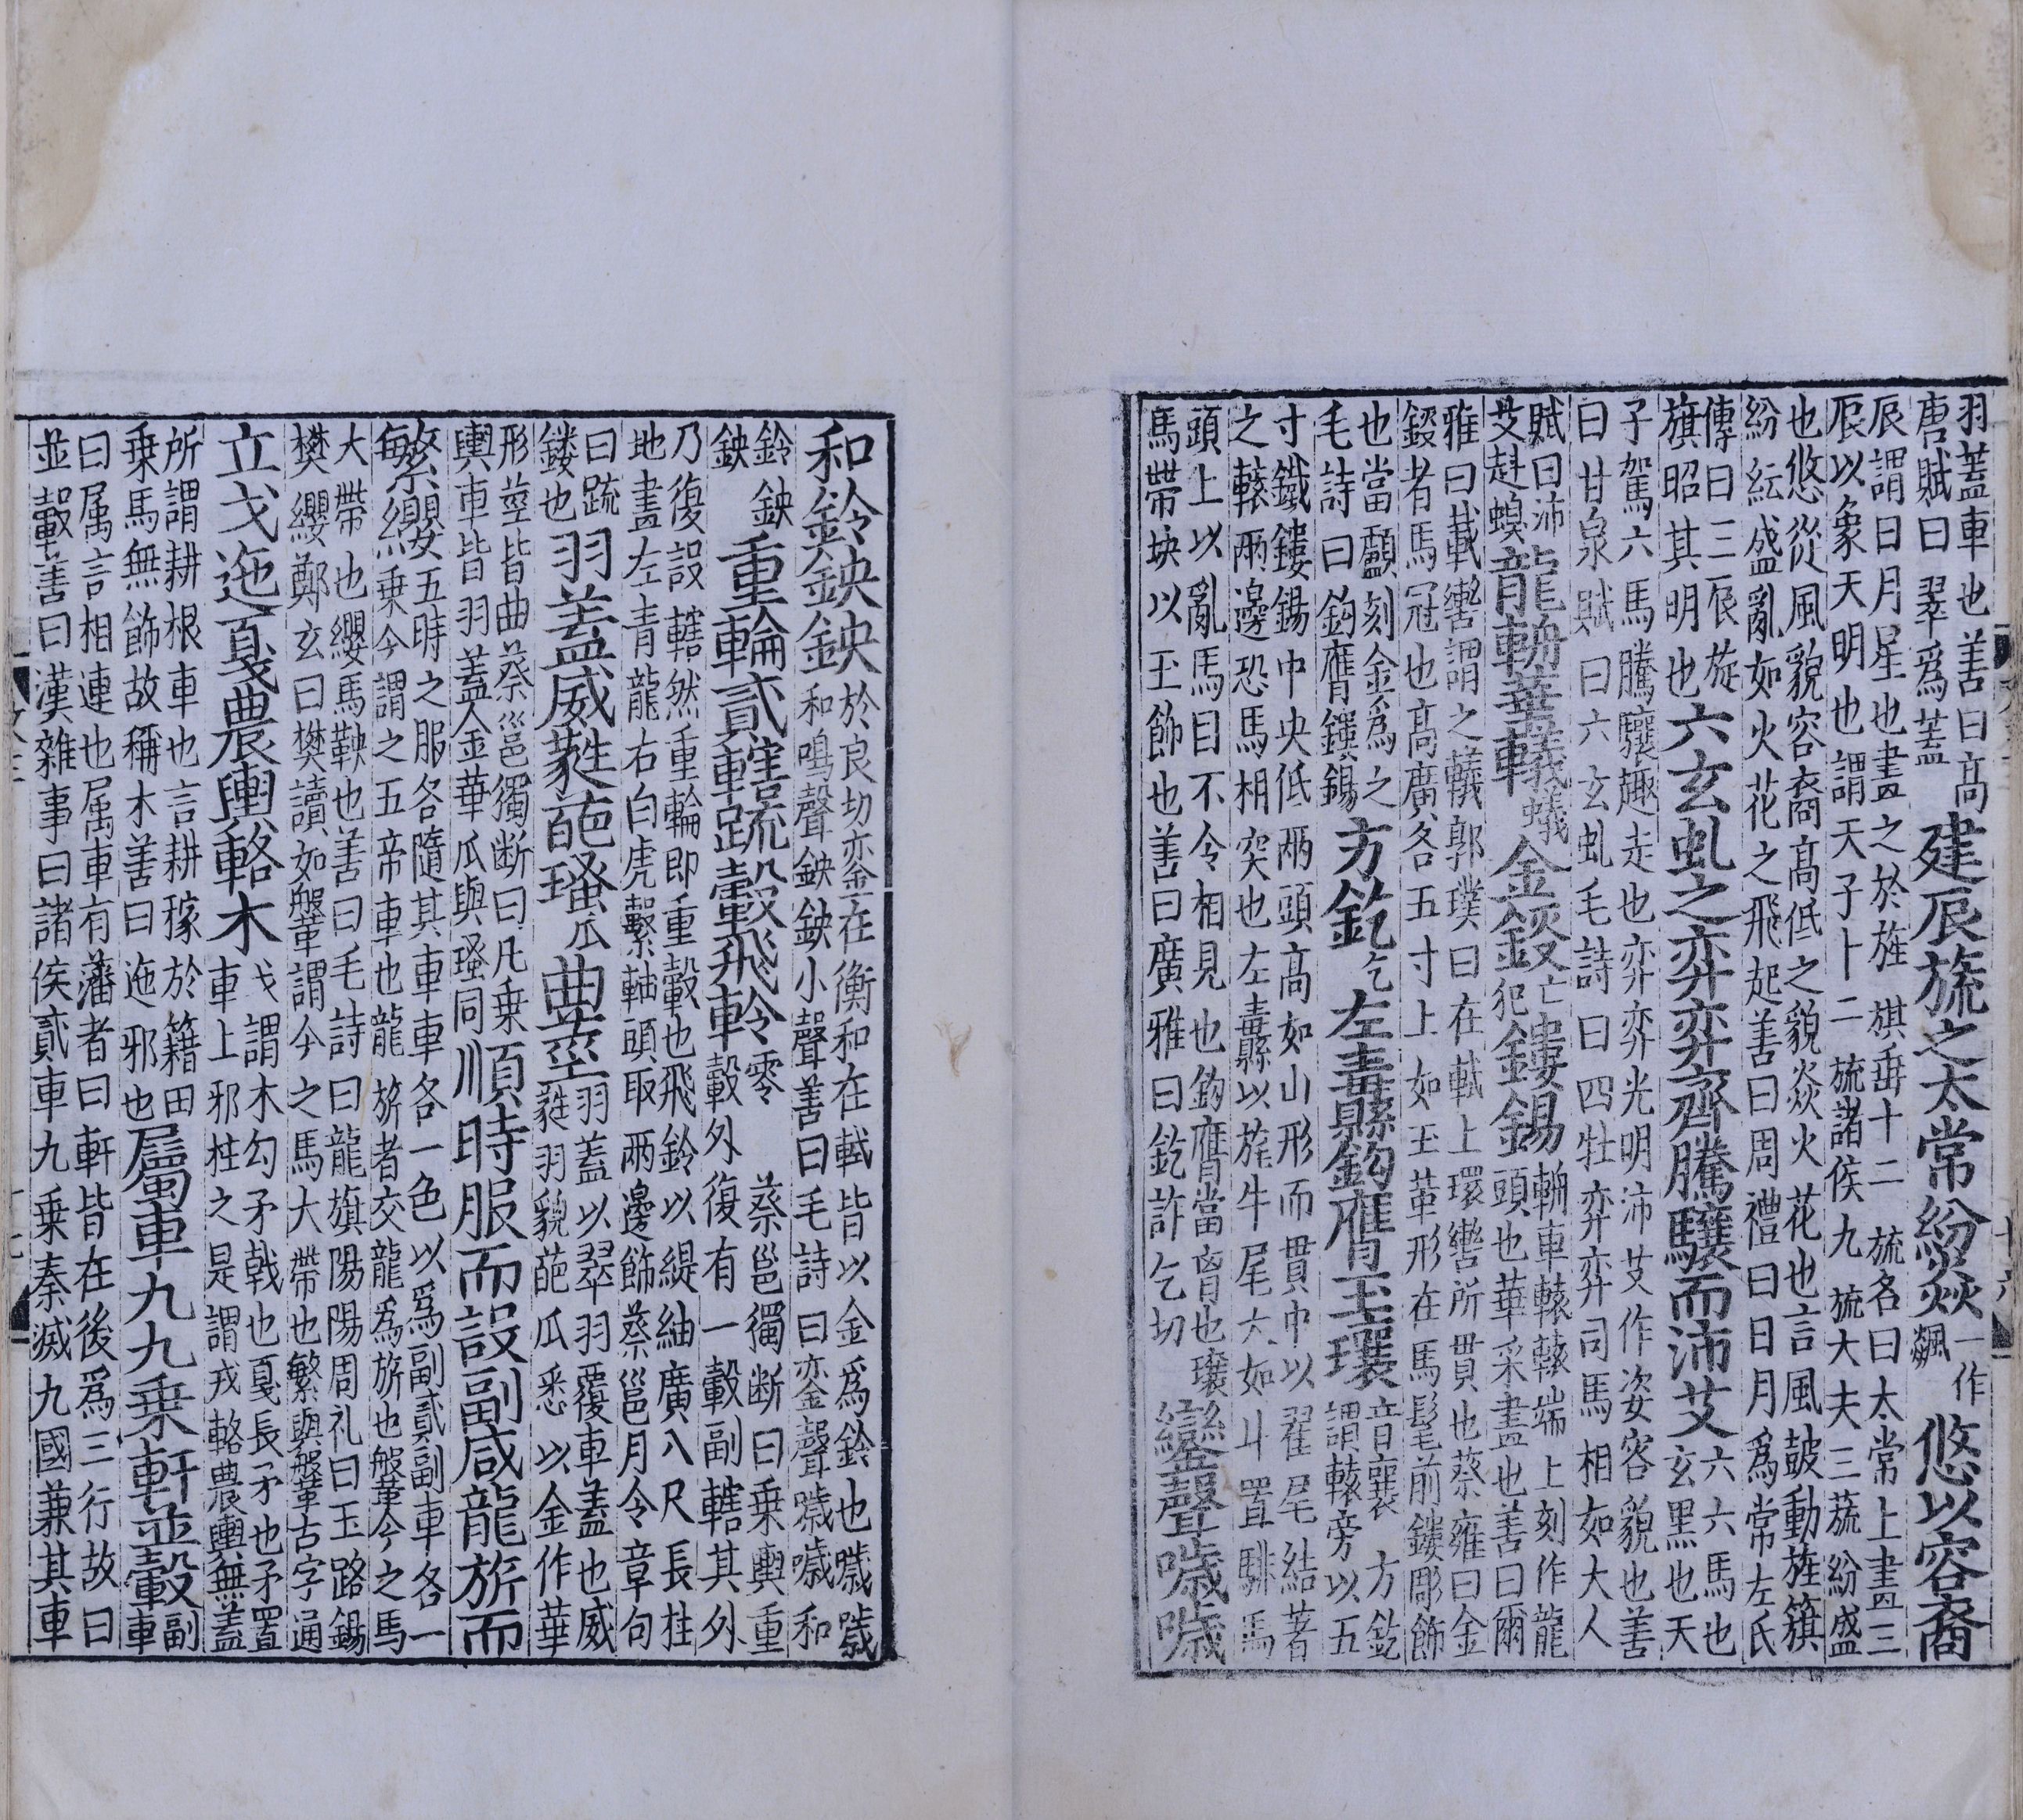 羽蓋車也善曰高
唐賦曰翠爲蓋建辰旒之太常紛焱一作飊悠以容裔
辰謂日月星也畫之於旌旗垂十二旒名曰太常上畫三
辰以象天明也謂天子十二旒諸侯九旒大夫三旒紛盛
也悠從風貌容裔高低之貌焱火花也言風皷動旌旗
紛紜盛亂如火花之飛起善曰周禮曰日月爲常左氏
傳曰三辰旂
旗昭其明也六玄虬之弈弈齊騰驤而沛艾六六馬也
玄黑也天
子駕六馬騰驤趣走也弈弈光明沛艾作姿容貌也善
曰甘泉賦曰六玄虬毛詩曰四牡弈弈司馬相如大人
賦曰沛
艾赳螑龍輈華轙蟻金鋄亡犯鏤錫輈車轅轅端上刻作龍
頭也華采畫也善曰爾
雅曰載轡謂之轙郭璞曰在軾上環轡所貫也蔡雍曰金
鋄者馬冠也高廣各五寸上如玉華形在馬髦前鏤彫飾
也當顱刻金爲之
毛詩曰鈎膺鏤錫方釳乞左纛鈎膺玉瓖音襄方釳
謂轅旁以五
寸鐵鏤錫中央低兩頭高如山形而貫中以翟尾結著
之轅兩邊恐馬相突也左纛以旄牛尾大如斗置騑馬
頭上以亂馬目不令相見也鈎膺當胷也瓖
馬帶玦以玉飾也善曰廣雅曰釳許乞切鑾聲噦噦
和鈴鉠鉠於良切鑾在衡和在軾皆以金爲鈴也噦噦
和鳴聲鉠鉠小聲善曰毛詩曰鑾聲噦噦和
鈴鉠
鉠重輪貳轄疏轂飛軨零蔡邕獨断曰乗輿重
轂外復有一轂副轄其外
乃復設轄然重輪即重轂也飛鈴以緹紬廣八尺長拄
地畫左青龍右白虎繫軸頭取兩邊飾蔡邕月令章句
曰疏
鏤也羽蓋威蕤葩瑵瓜曲莖羽蓋以翠羽覆車蓋也威
蕤羽貌葩瓜悉以金作華
形莖皆曲蔡邕獨断曰凡乗
輿車皆羽蓋金華瓜與瑵同順時服而設副咸龍旂而
繁纓五時之服各隨其車車各一色以爲副貳副車各一
乗今謂之五帝車也龍旂者交龍爲旂也鞶今之馬
大帶也纓馬鞅也善曰毛詩曰龍旗陽陽周礼曰玉路錫
樊纓鄭玄曰樊讀如鞶謂今之馬大帶也繁與鞶古字通
立戈迤戛農輿輅木戈謂木勾矛戟也戛長矛也矛置
車上邪柱之是謂戎輅農輿無蓋
所謂耕根車也言耕稼於籍田
乗馬無飾故稱木善曰迤邪也屬車九九乗軒並轂副
車
曰属言相連也属車有藩者曰軒皆在後爲三行故曰
並轂善曰漢雜事曰諸侯貳車九乗秦滅九國兼其車